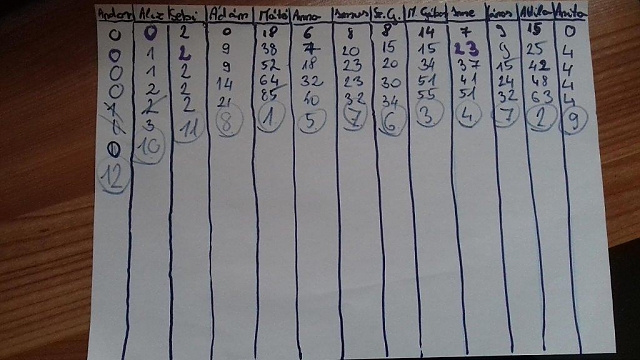 Andor Alex Ketai Ádám Máté Anna Bernus Sz.G. M. Gábor Imre János Attila Anita
0 0 2 0 18 6 8 8 14 7 9 15 0
0 1 2 9 38 7 20 15 15 23 9 25 4
0 1 2 9 52 18 23 20 34 37 15 42 4
0 2 2 14 64 32 23 30 51 41 24 48 4
1 2 2 21 85 40 32 34 55 51 32 63 4
1 3 11 8 1 5 7 6 3 4 7 2 9
0 10
12